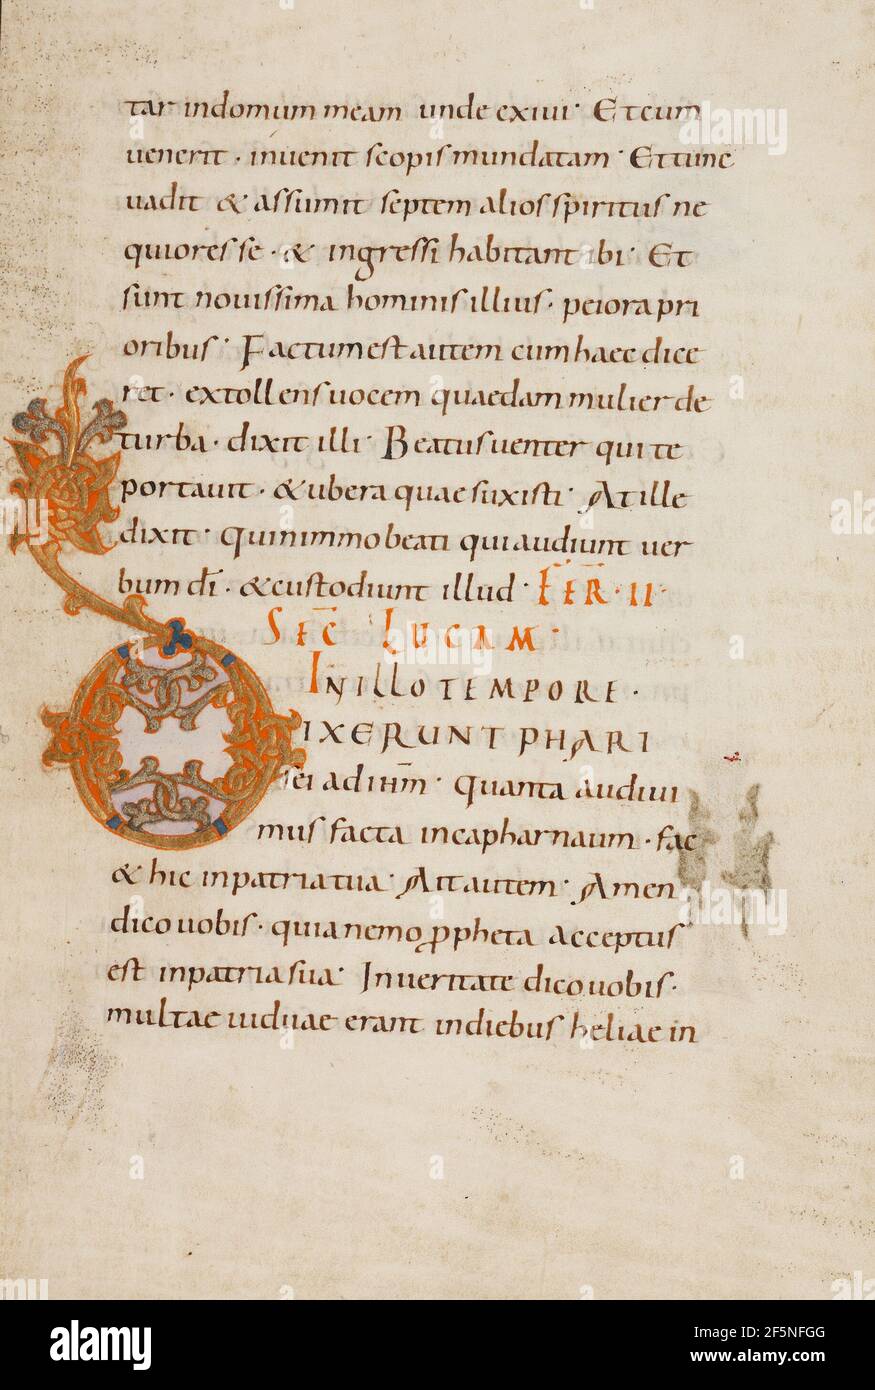 tar in domum meam unde exiui· Et cum
uenerit · inuenit scopis mundatam· Et tunc
uadit & assumit septem alios spiritus ne
quiores se · & ingressi habitant ibi· Et
sunt nouissima hominis illius · peiora pri
oribus· Factum est autem cum haec dice
ret · extollens uocem quaedam mulier de
turba · dixit illi· Beatus uenter qui te
portauit · & ubera quae suxisti· At ille
dixit· quin immo beati qui audiunt uer
bum dī · & custodiunt illud· FER̄ · II ·
SEC̄ LUCAM·
IN ILLO TEMPORE ·
DIXERUNT PHARI
sei ad ihm̄· quanta audiui
mus facta in capharnaum · fac
& hic in patria tua· Ait autem· Amen
dico uobis · quia nemo ppheta acceptus
est in patria sua· In ueritate dico uobis ·
multae uiduae erant in diebus heliae in
alamy
Image ID: 2F5NFGG
www.alamy.com